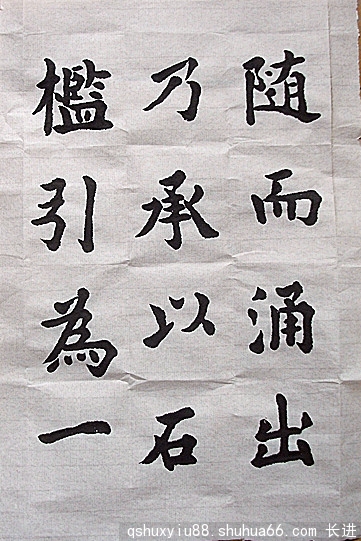 随而涌出
乃承以石
檻引為一
qshuxyiu88.shuhua66.com 长进